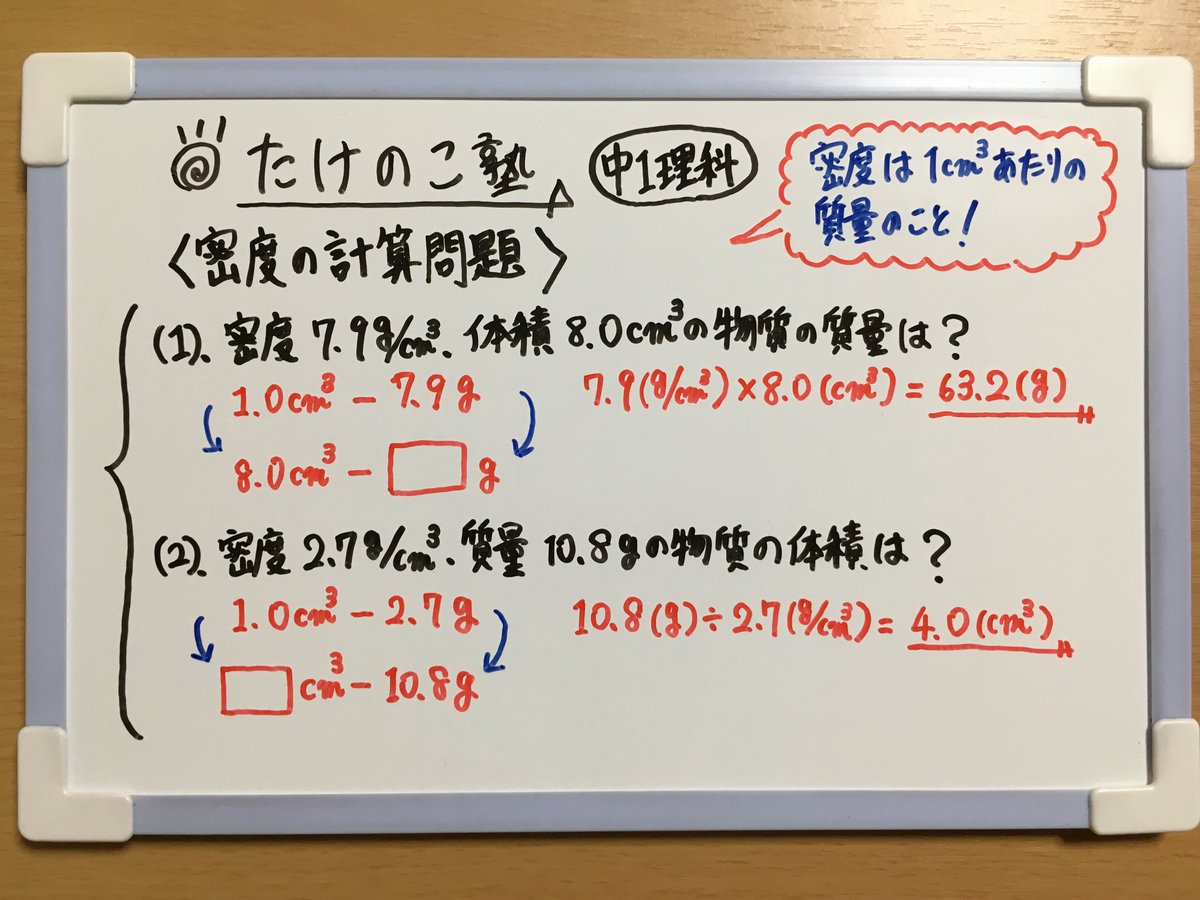 たけのこ塾
中1理科
密度は1cm³あたりの
質量のこと!
〈密度の計算問題〉
(1). 密度7.9g/cm³. 体積8.0cm³の物質の質量は?
1.0cm³ − 7.9g
7.9(g/cm³)×8.0(cm³)=63.2(g)
8.0cm³ − □ g
(2). 密度2.7g/cm³. 質量10.8gの物質の体積は?
1.0cm³ − 2.7g
10.8(g)÷2.7(g/cm³)=4.0(cm³)
□ cm³ − 10.8g